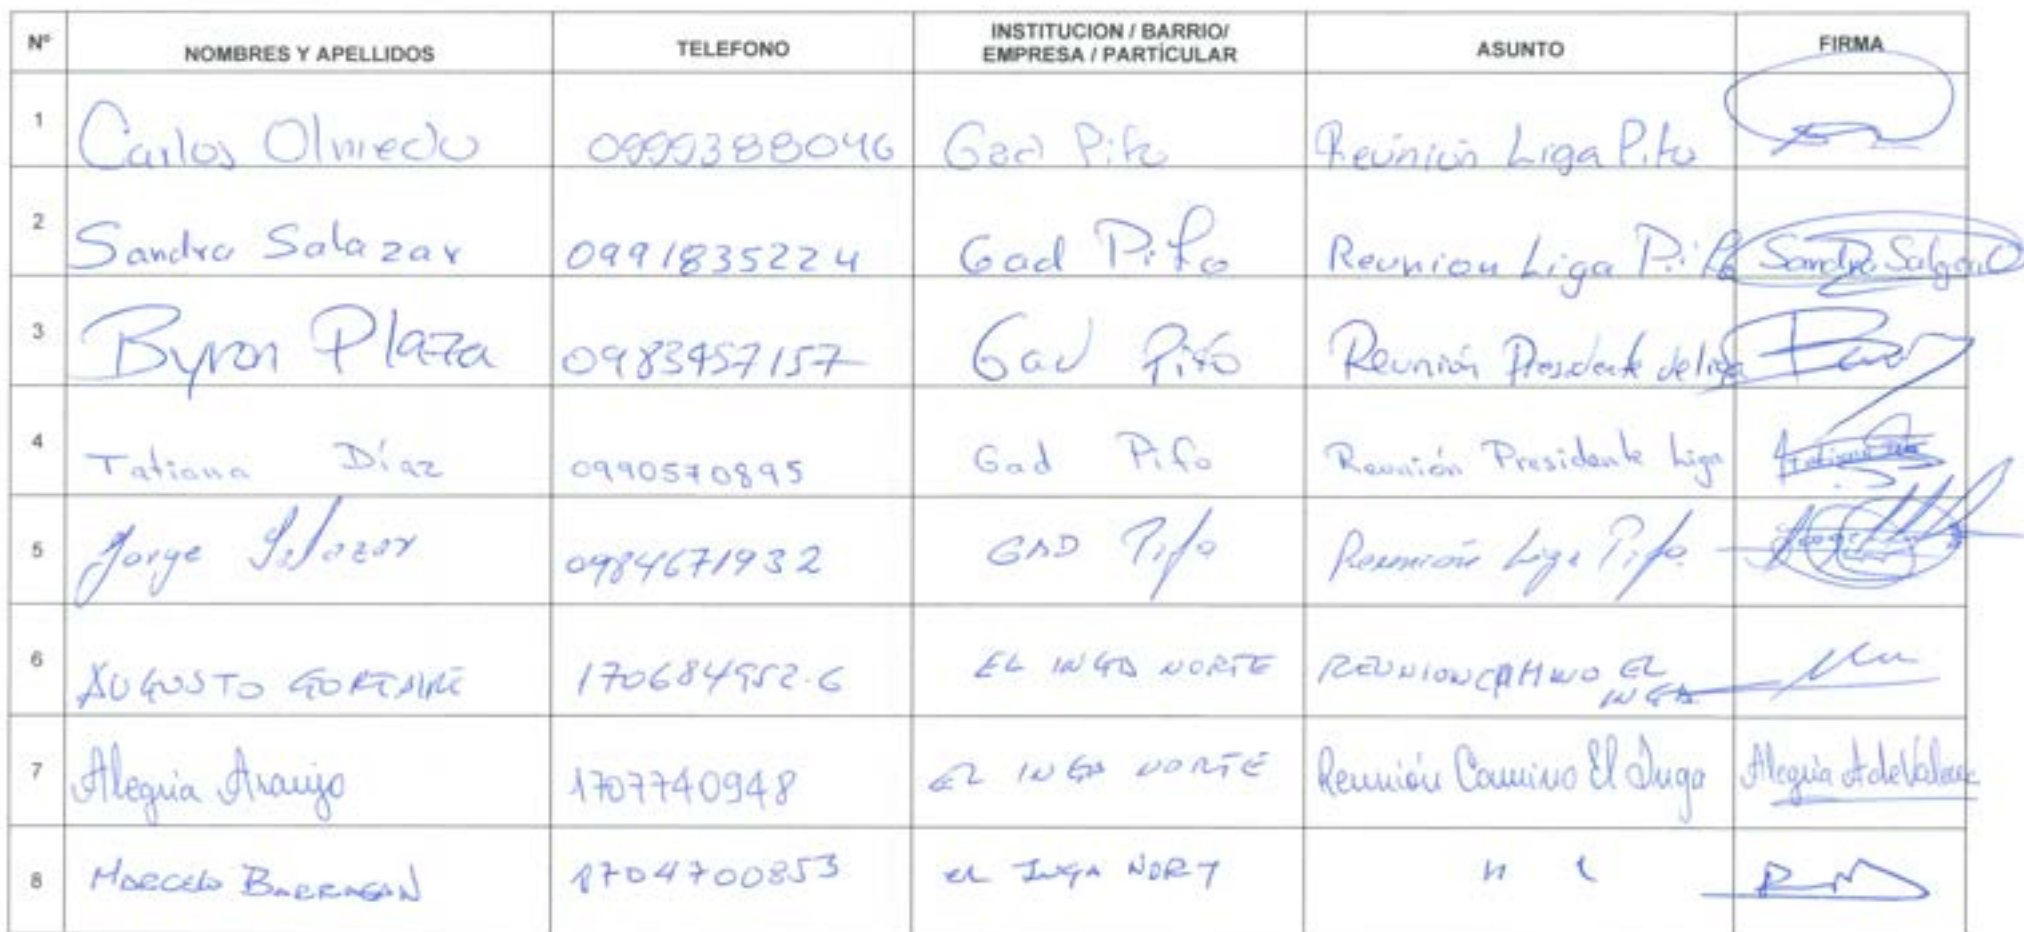 Nº NOMBRES Y APELLIDOS TELEFONO INSTITUCION / BARRIO/ EMPRESA / PARTÍCULAR ASUNTO FIRMA
1 Carlos Olmedo 0999388046 Gad Pifo Reunión Liga Pifo
2 Sandra Salazar 0991835224 Gad Pifo Reunion Liga Pifo Sandra
3 Byron Plaza 0983457157 Gad Pifo Reunión Presidente de liga
4 Tatiana Díaz 0990570895 Gad Pifo Reunión Presidente Liga
5 Jorge Salazar 0984671932 GAD Pifo Reunión Liga Pifo
6 AUGUSTO 170684952-6 EL INGA NORTE REUNION CAMINO EL
INGA
7 Alegria Araujo 1707740948 EL INGA NORTE Reunión Camino El Inga Alegria A de
8 MARCELO BARRAGAN 1704700853 EL INGA NORT